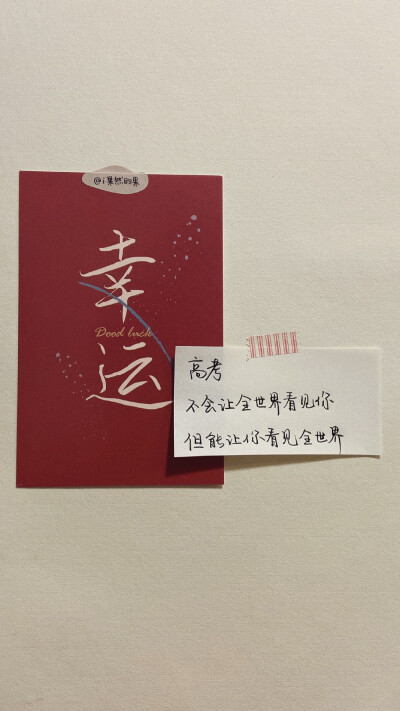 @i果然的果
幸
Dood luck
运
高考
不会让全世界看见你
但能让你看见全世界